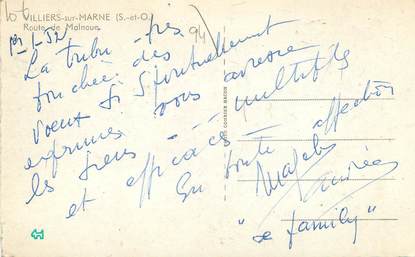 lot
VILLIERS-sur-MARNE (S.-et-O.)
Route de Malnoue
94
1er-1-52
La tribu - très
touchée des
voeux si spirituellement
exprimés vous adresse
les siens - - multiples
et efficaces -
En toute affection
"se family"